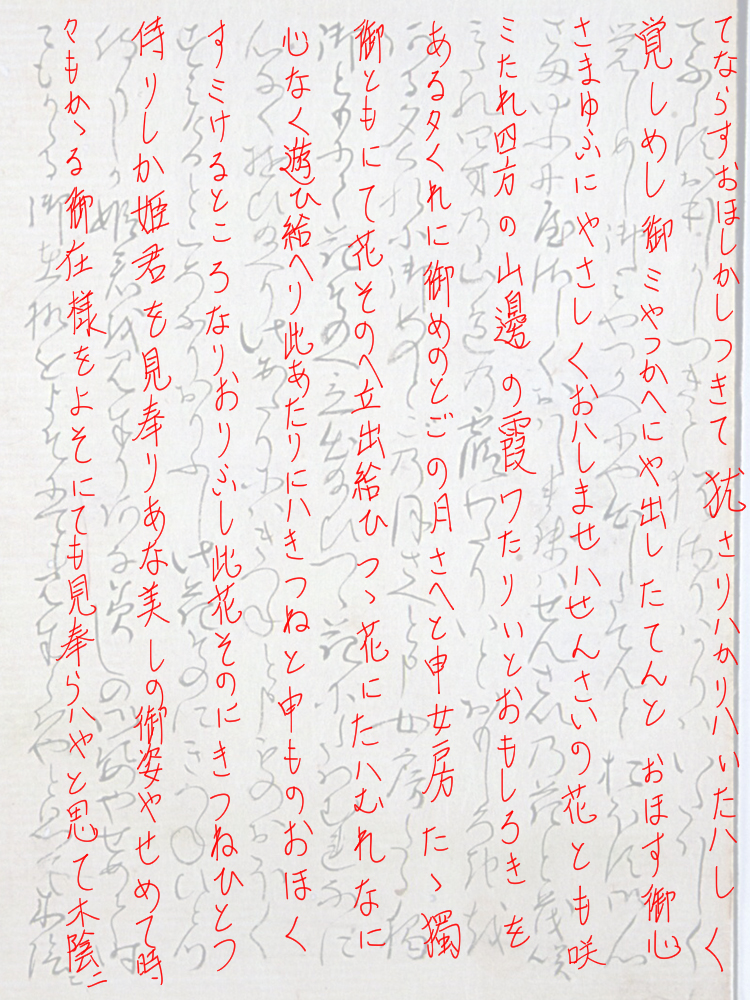 てならすおほしかしつきて 犹さりハかりハいたハしく
覚しめし御ミやつかへにや出したてんと おほす御心
さまゆふにやさしくおハしませハせんさいの花とも咲
ミたれ四方の山邊の霞ワたりいとおもしろきを
ある夕くれに御めのとごの月さへと申女房たゝ獨
御ともにて花そのへ立出給ひつゝ花にたハむれなに
心なく遊ひ給へり此あたりにハきつねと申ものおほく
すミけるところなりおりふし此花そのにきつねひとつ
侍りしか姫君を見奉りあな美しの御姿やせめて時
々もかゝる御在様をよそにても見奉らハやと思て木陰ニ